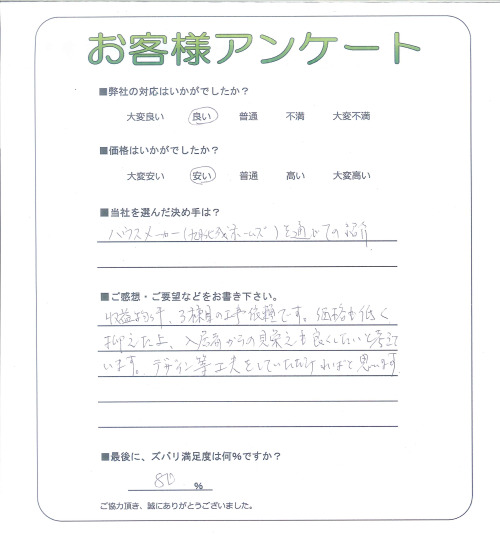 お客様アンケート
■弊社の対応はいかがでしたか？
大変良い 良い 普通 不満 大変不満
■価格はいかがでしたか？
大変安い 安い 普通 高い 大変高い
■当社を選んだ決め手は？
ハウスメーカー(旭化成ホームズ)を通じての紹介
■ご感想・ご要望などをお書き下さい。
収益物件、3棟目の工事依頼です。価格を低く
抑えた上、入居者からの見栄えも良くしたいと考えて
います。デザイン等工夫をしていただければと思います
■最後に、ズバリ満足度は何%ですか？
80 %
ご協力頂き、誠にありがとうございました。